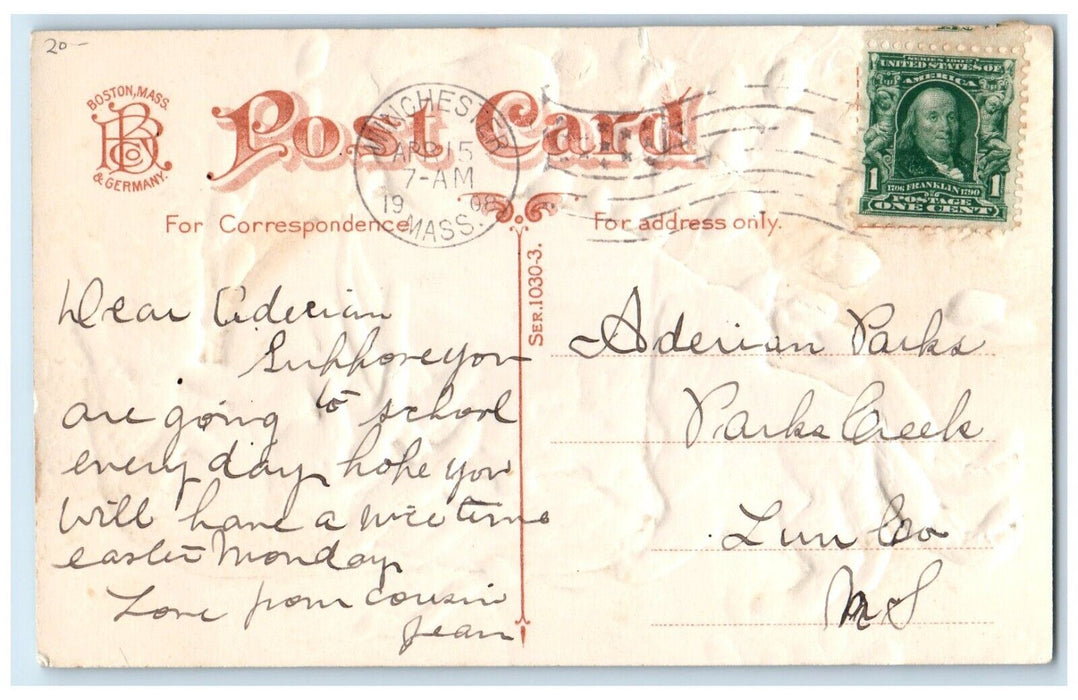 20-
BOSTON, MASS.
BRCo
& GERMANY.
Post Card
WINCHESTER
APR 15
7-AM
1908
MASS.
SERIES 1902
UNITED STATES OF
AMERICA
1 1
1706 FRANKLIN 1790
POSTAGE
ONE CENT
For Correspondence
For address only.
SER. 1030-3.
Dear Aderian
Suppose you
are going to school
every day, hope you
will have a nice time
easter Monday
Love from cousin
Jean
Aderian Parks
Parks Creek
Lun Co
N S